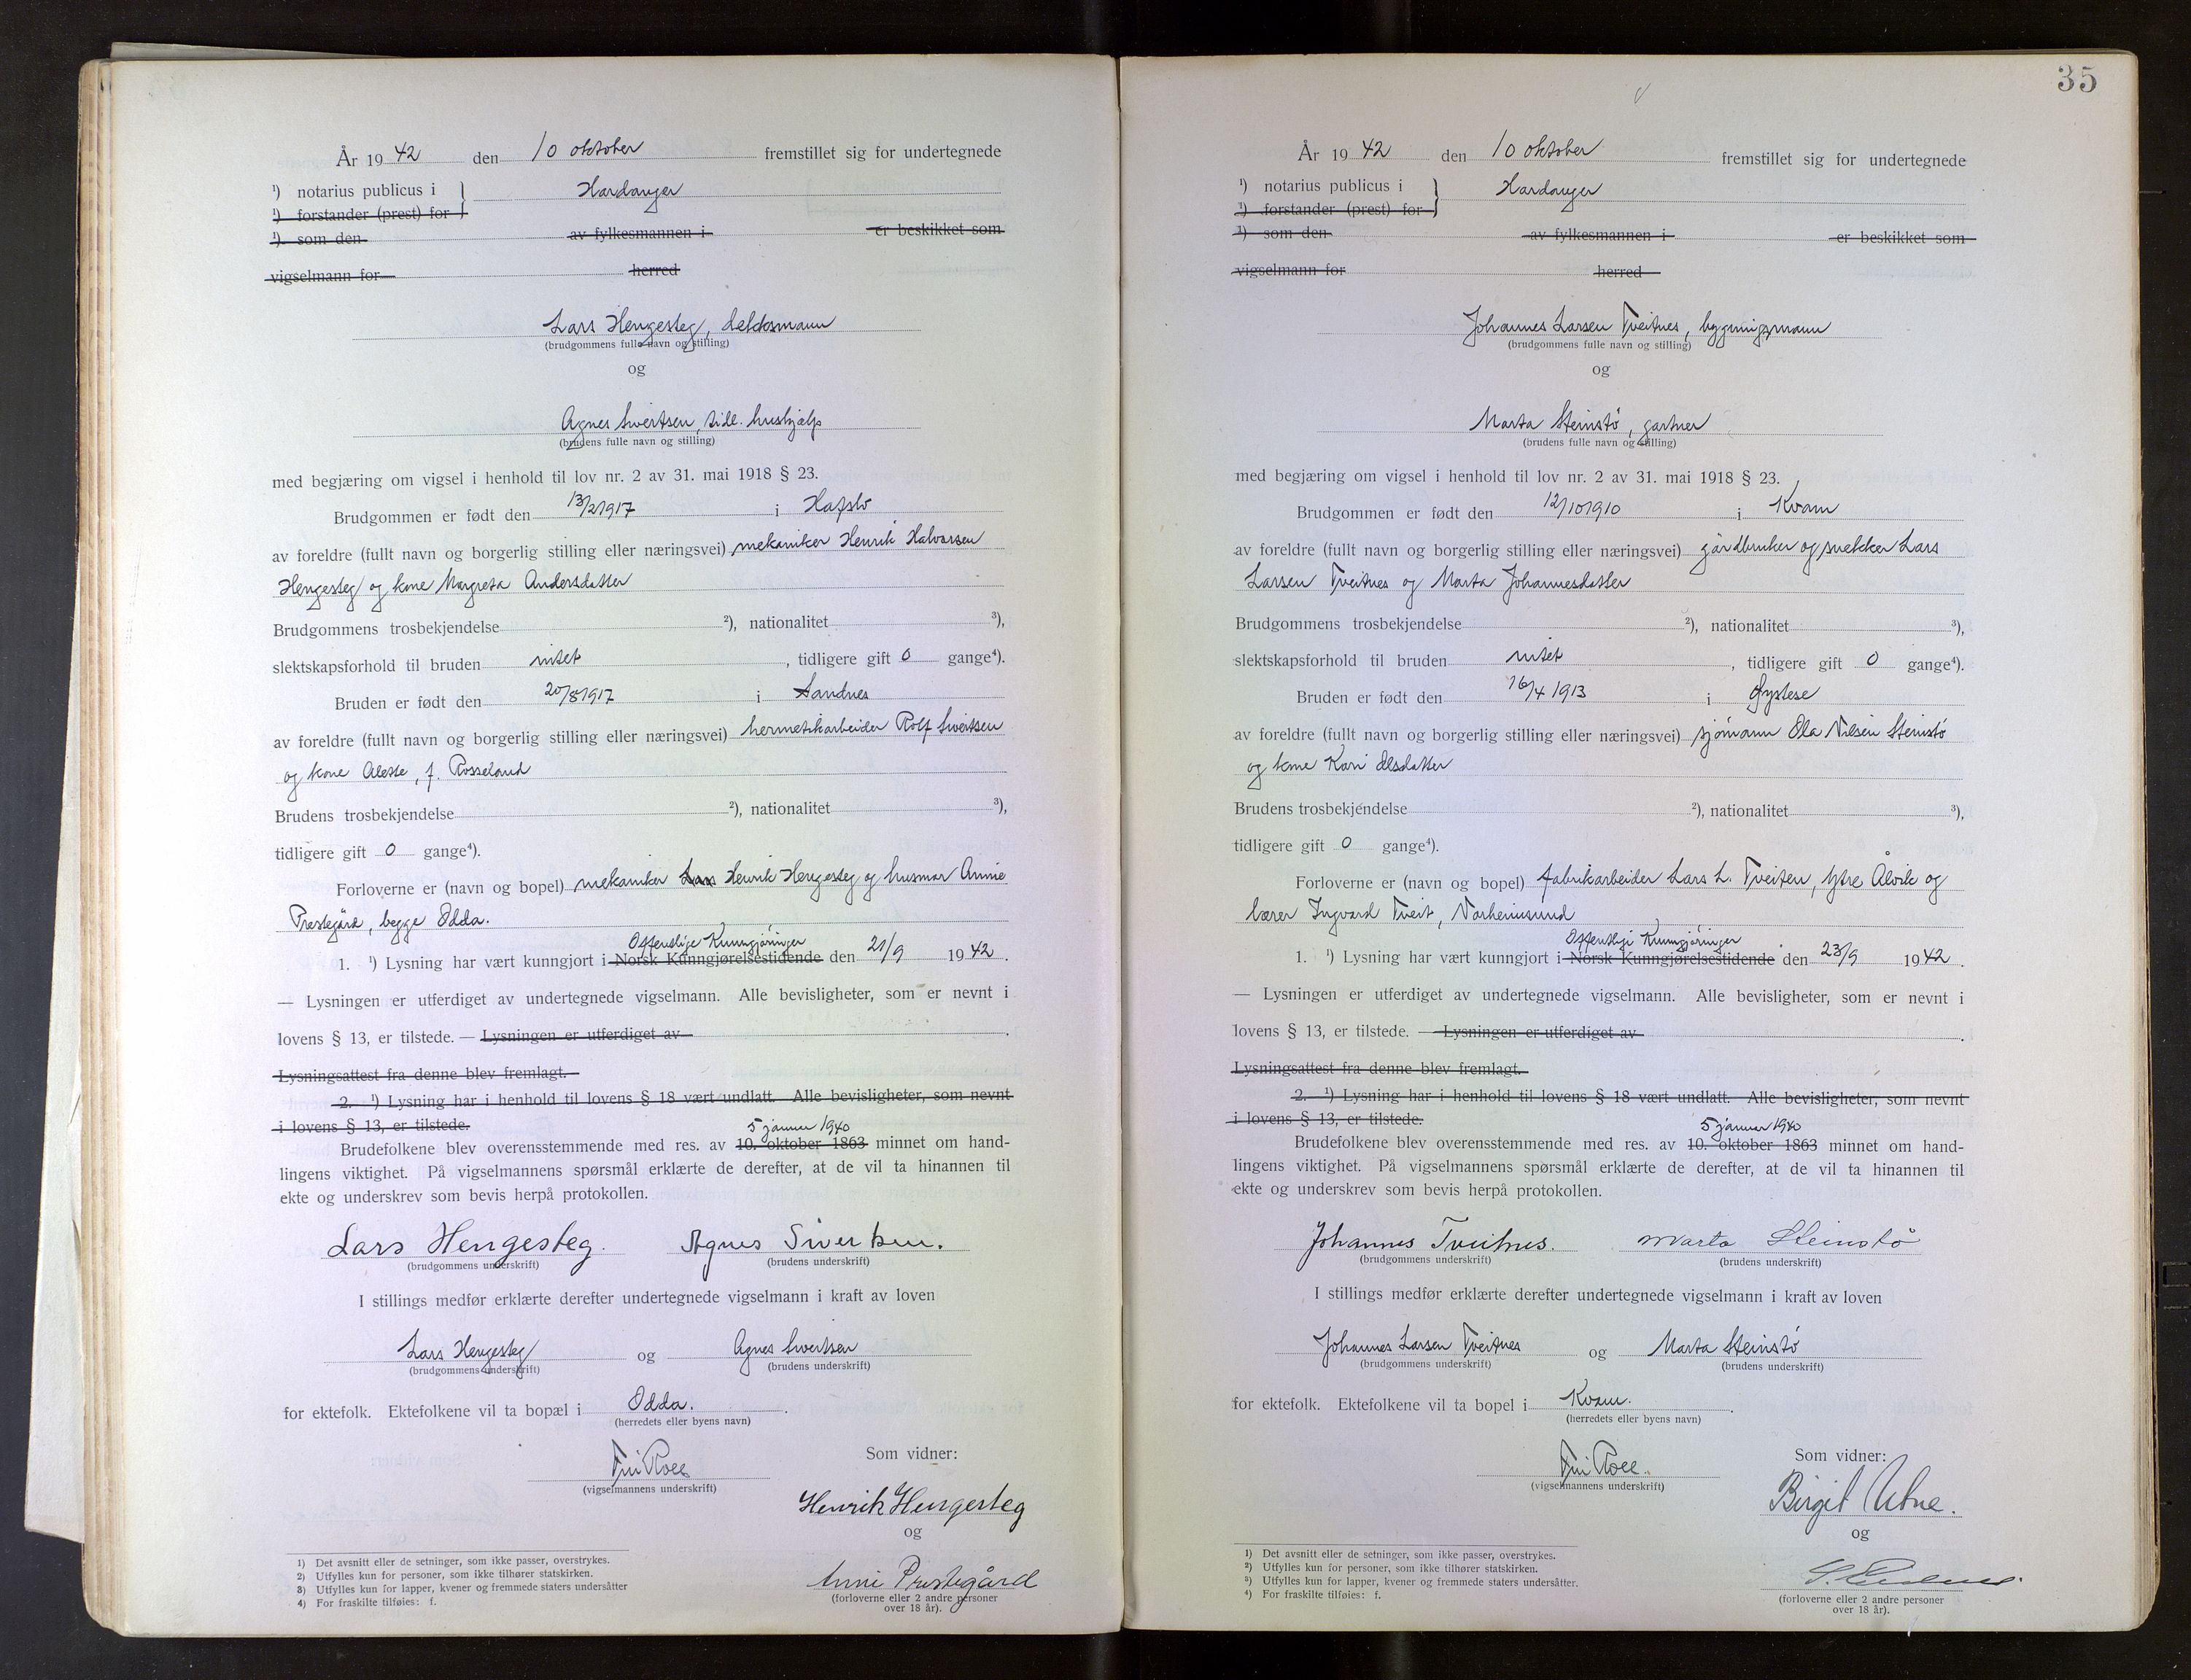 År 19 42 den 10 oktober fremstillet sig for undertegnede
¹) notarius publicus i } Hardanger
¹) forstander (prest) for
¹) som den av fylkesmannen i er beskikket som
vigselmann for herred
Lars Hengesteg,
(brudgommens fulle navn og stilling)
og
Agnes Sivertsen, tidl. hushjelp
(brudens fulle navn og stilling)
med begjæring om vigsel i henhold til lov nr. 2 av 31. mai 1918 § 23.
Brudgommen er født den 13/2 1917 i Hafslo
av foreldre (fullt navn og borgerlig stilling eller næringsvei) mekaniker Henrik Halvorsen
Hengesteg og kone Margreta Andersdatter
Brudgommens trosbekjendelse ²), nationalitet ³),
slektskapsforhold til bruden intet , tidligere gift 0 gange⁴).
Bruden er født den 20/8 1917 i Sandnes
av foreldre (fullt navn og borgerlig stilling eller næringsvei) hermetikarbeider Rolf Sivertsen
og kone Aleste, f. Rosseland
Brudens trosbekjendelse ²), nationalitet ³),
tidligere gift 0 gange⁴).
Forloverne er (navn og bopel) mekaniker Lars Henrik Hengesteg og husmor Annie
Prestegård, begge Odda.
Offentlige Kunngjøringer
1. ¹) Lysning har vært kunngjort i Norsk Kunngjørelsestidende den 21/9 1942.
— Lysningen er utferdiget av undertegnede vigselmann. Alle bevisligheter, som er nevnt i
lovens § 13, er tilstede. — Lysningen er utferdiget av .
Lysningsattest fra denne blev fremlagt.
2. ¹) Lysning har i henhold til lovens § 18 vært undlatt. Alle bevisligheter, som nevnt
i lovens § 13, er tilstede.
5 januar 1940
Brudefolkene blev overensstemmende med res. av 10. oktober 1863 minnet om hand-
lingens viktighet. På vigselmannens spørsmål erklærte de derefter, at de vil ta hinannen til
ekte og underskrev som bevis herpå protokollen.
Lars Hengesteg. Agnes Sivertsen.
(brudgommens underskrift) (brudens underskrift)
I stillings medfør erklærte derefter undertegnede vigselmann i kraft av loven
Lars Hengesteg og Agnes Sivertsen
(brudgommens underskrift) (brudens underskrift)
for ektefolk. Ektefolkene vil ta bopæl i Odda.
(herredets eller byens navn)
Som vidner:
(vigselmannens underskrift)
Henrik Hengesteg
og
Anni Prestegård
(forloverne eller 2 andre personer
over 18 år).
1) Det avsnitt eller de setninger, som ikke passer, overstrykes.
2) Utfylles kun for personer, som ikke tilhører statskirken.
3) Utfylles kun for lapper, kvener og fremmede staters undersåtter
4) For fraskilte tilføies: f.
35
År 19 42 den 10 oktober fremstillet sig for undertegnede
¹) notarius publicus i } Hardanger
¹) forstander (prest) for
¹) som den av fylkesmannen i er beskikket som
vigselmann for herred
Johannes Larsen Tveitnes, bygningsmann
(brudgommens fulle navn og stilling)
og
Marta Steinstø, gartner
(brudens fulle navn og stilling)
med begjæring om vigsel i henhold til lov nr. 2 av 31. mai 1918 § 23.
Brudgommen er født den 12/10 1910 i Kvam
av foreldre (fullt navn og borgerlig stilling eller næringsvei) gårdbruker og snekker Lars
Larsen Tveitnes og Marta Johannesdatter
Brudgommens trosbekjendelse ²), nationalitet ³),
slektskapsforhold til bruden intet , tidligere gift 0 gange⁴).
Bruden er født den 16/4 1913 i Øystese
av foreldre (fullt navn og borgerlig stilling eller næringsvei) sjømann Ola Nilsen Steinstø
og kone Kari
Brudens trosbekjendelse ²), nationalitet ³),
tidligere gift 0 gange⁴).
Forloverne er (navn og bopel) fabrikarbeider Lars L. Tveiten, Ytre Ålvik og
lærer Ingvard Tveit, Norheimsund
Offentlige Kunngjøringer
1. ¹) Lysning har vært kunngjort i Norsk Kunngjørelsestidende den 23/9 1942.
— Lysningen er utferdiget av undertegnede vigselmann. Alle bevisligheter, som er nevnt i
lovens § 13, er tilstede. — Lysningen er utferdiget av .
Lysningsattest fra denne blev fremlagt.
2. ¹) Lysning har i henhold til lovens § 18 vært undlatt. Alle bevisligheter, som nevnt
i lovens § 13, er tilstede.
5 januar 1940
Brudefolkene blev overensstemmende med res. av 10. oktober 1863 minnet om hand-
lingens viktighet. På vigselmannens spørsmål erklærte de derefter, at de vil ta hinannen til
ekte og underskrev som bevis herpå protokollen.
Johannes Tveitnes. Marta Steinstø
(brudgommens underskrift) (brudens underskrift)
I stillings medfør erklærte derefter undertegnede vigselmann i kraft av loven
Johannes Larsen Tveitnes og Marta Steinstø
(brudgommens underskrift) (brudens underskrift)
for ektefolk. Ektefolkene vil ta bopel i Kvam.
(herredets eller byens navn)
Som vidner:
(vigselmannens underskrift)
Birgit Utne.
og
(forloverne eller 2 andre personer
over 18 år).
¹) Det avsnitt eller de setninger, som ikke passer, overstrykes.
²) Utfylles kun for personer, som ikke tilhører statskirken.
³) Utfylles kun for lapper, kvener og fremmede staters undersåtter.
⁴) For fraskilte tilføies: f.